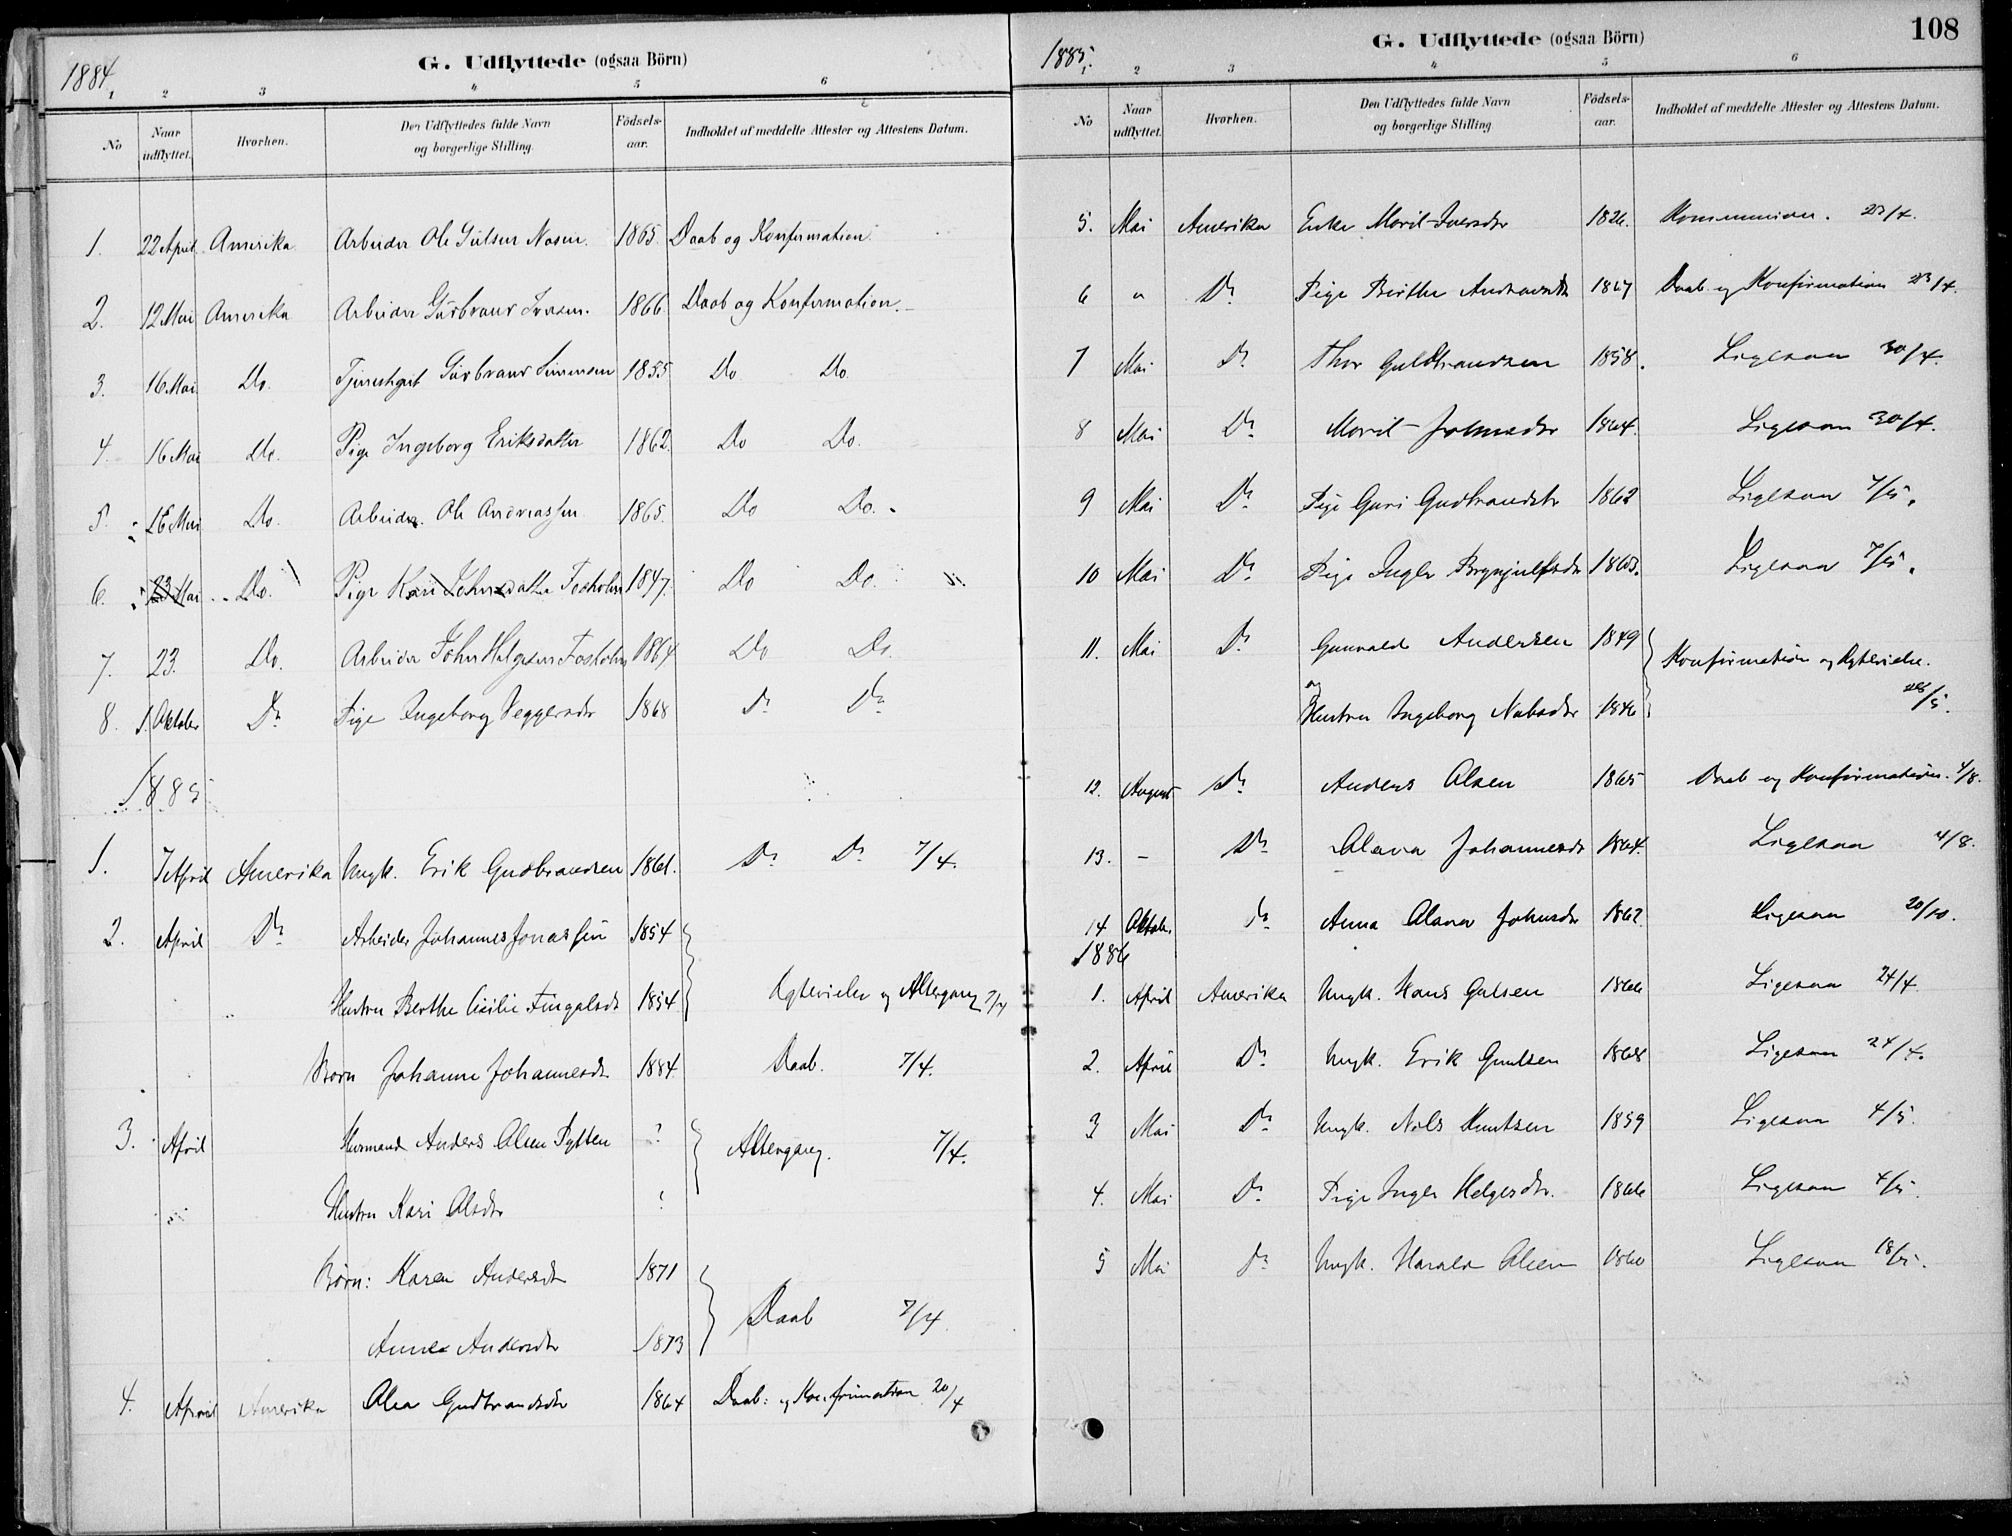 1884.
G. Udflyttede (ogsaa Börn)
1 2 3 4 5 6
No Naar udflyttet. Hvorhen. Den Udflyttedes fulde Navn og borgerlige Stilling. Födsels-aar. Indholdet af meddelte Attester og Attestens Datum.
1. 22 April Amerika Arbeider Ole 1865. Daab og Konfirmation.
2. 12 Mai Amerika Arbeider Gudbrand Iversen. 1866 Daab og Konfirmation.
3. 16 Mai Do. Gudbrand Simensen 1855 Do Do.
4. 16 Mai Do. Pige Ingeborg Eriksdatter 1862. Do Do.
5. 16 Mai Do. Arbeider Ole Andreassen 1865. Do Do.
6. 23 Mai Do. Pige Kari Johnsdatter Fosholm 1847. Do Do.
7. 23. Do. Arbeider John Helgesen Fosholm 1864 Do Do.
8. 1. Oktober Do Pige Ingeborg Veggersdtr 1868 Do Do
1885
1. 7 April Amerika Ungk. Erik Gudbrandsen 1861. Do Do 7/4.
2. April Do Arbeider Johannes Jonassen 1854
Hustru Berthe Cicilie Fingalsdtr 1854 Ægtevielse og Altergang 7/4
Barn Johanne Johannesdtr 1884. Daab. 7/4.
3. April Husmand Anders Olsen Pytten ? Altergang. 7/4.
Hustru Kari Olsdtr ?
Børn: Karen Andersdtr 1871
Daab 7/4.
Anne Andersdtr 1873
4. April Amerika Olea Gudbrandsdtr 1864 Daab og Konfirmation 20/4
1885.
G. Udflyttede (ogsaa Börn)
108
1 2 3 4 5 6
No Naar udflyttet. Hvorhen. Den Udflyttedes fulde Navn og borgerlige Stilling Födsels-aar. Indholdet af meddelte Attester og Attestens Datum.
5. Mai Amerika Enke Marit Iversdtr 1826. Kommunion. 23/4.
6 " Do Pige Berthe Andreasdtr 1867 Daab og Konfirmation 23/4.
7 Mai Do Thor Guldbrandsen 1858. Ligesaa 30/4.
8 Mai Do Marit Johnsdtr 1864. Ligesaa 30/4.
9 Mai Do Pige Guri Gudbrandsdtr 1862 Ligesaa 7/5.
10 Mai Do Pige Ingler Brynjulfsdtr 1863. Ligesaa 7/5.
11. Mai Do Gunvald Andersen 1849
Konfirmation og Ægtevielse.
og Hustru Ingeborg Nubsdtr 1846 28/5.
12. August Do Anders Olsen 1865 Daab og Konfirmation. 4/8.
13. - Do Olava Johannesdtr 1864. Ligesaa 4/8.
14 Oktob. Do Anna Olava Johnsdtr 1862. Ligesaa 20/10.
1886
1. April Amerika Ungk. Hans Gulsen 1866 Ligesaa 24/4
2. April Do Ungk. Erik Gulsen 1868 Ligesaa 24/4.
3 Mai Do Ungk. Nils Knutsen 1859 Ligesaa 4/5.
4. Mai Do Pige Ingler Helgesdtr. 1866 Ligesaa 4/5
5 Mai Do Ungk. Harald Olsen 1860 Ligesaa 18/5.